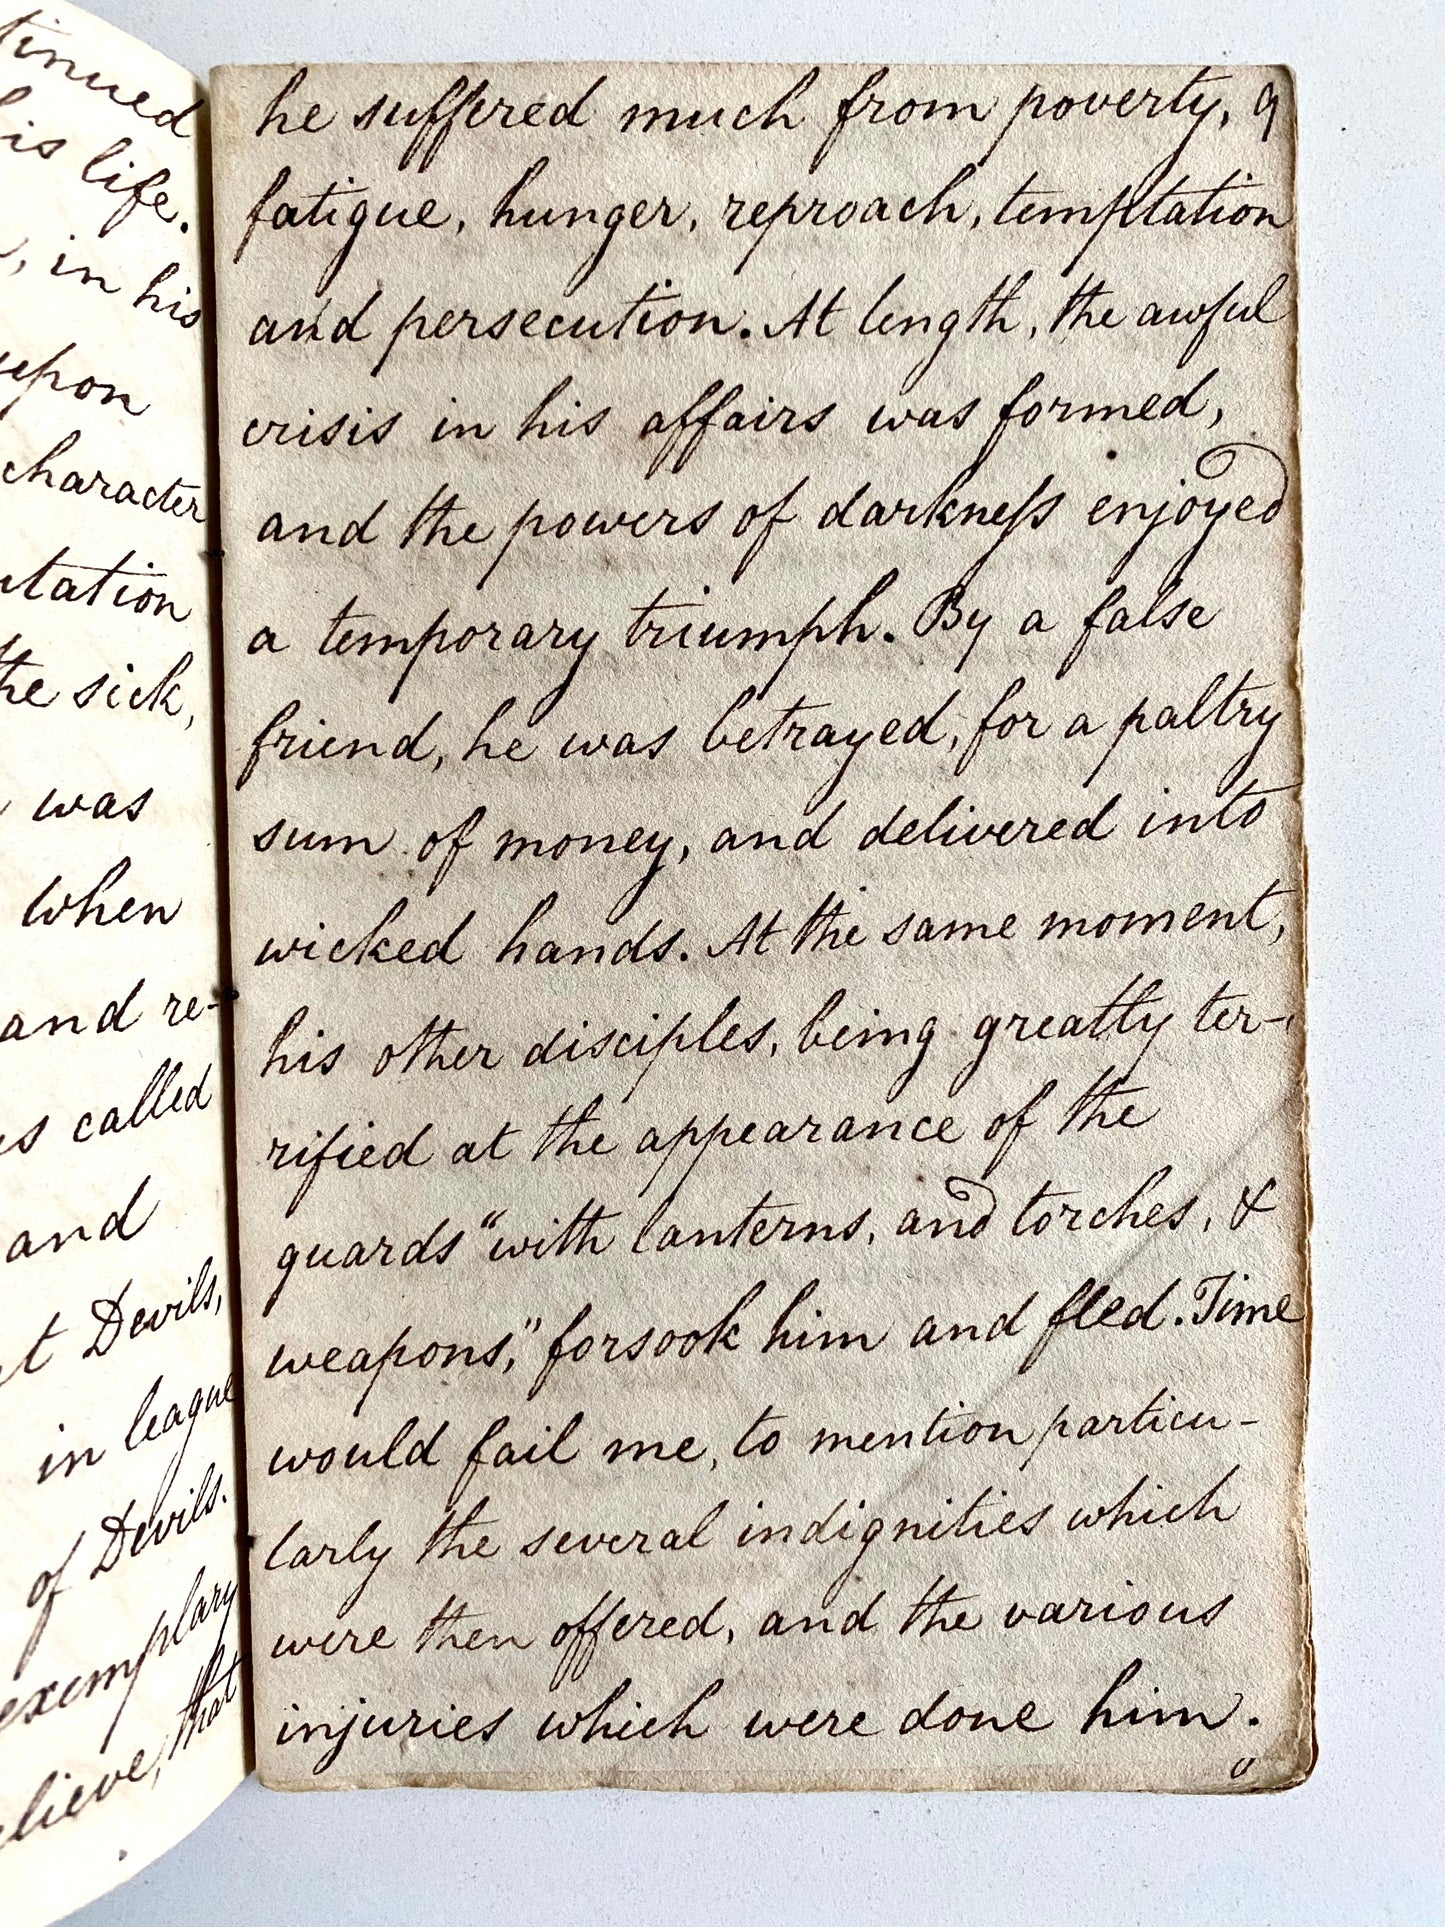 tinued
his life.
, in his
upon
character
utation
the sick,
was
when
and re-
called
and
Devils,
in league
of Devils.
exemplary
that
he suffered much from poverty, 9
fatigue, hunger, reproach, temptation
and persecution. At length, the awful
crisis in his affairs was formed,
and the powers of darkneſs enjoyed
a temporary triumph. By a false
friend, he was betrayed, for a paltry
sum of money, and delivered into
wicked hands. At the same moment,
his other disciples, being greatly ter-
rified at the appearance of the
guards "with lanterns, and torches, &
weapons," forsook him and fled. Time
would fail me, to mention particu-
larly the several indignities which
were then offered, and the various
injuries which were done him.